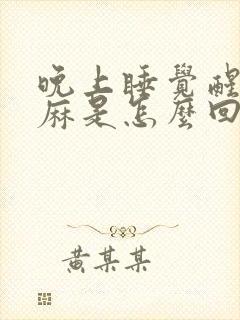 晚上睡覺醒
麻是怎麼回
黃某某